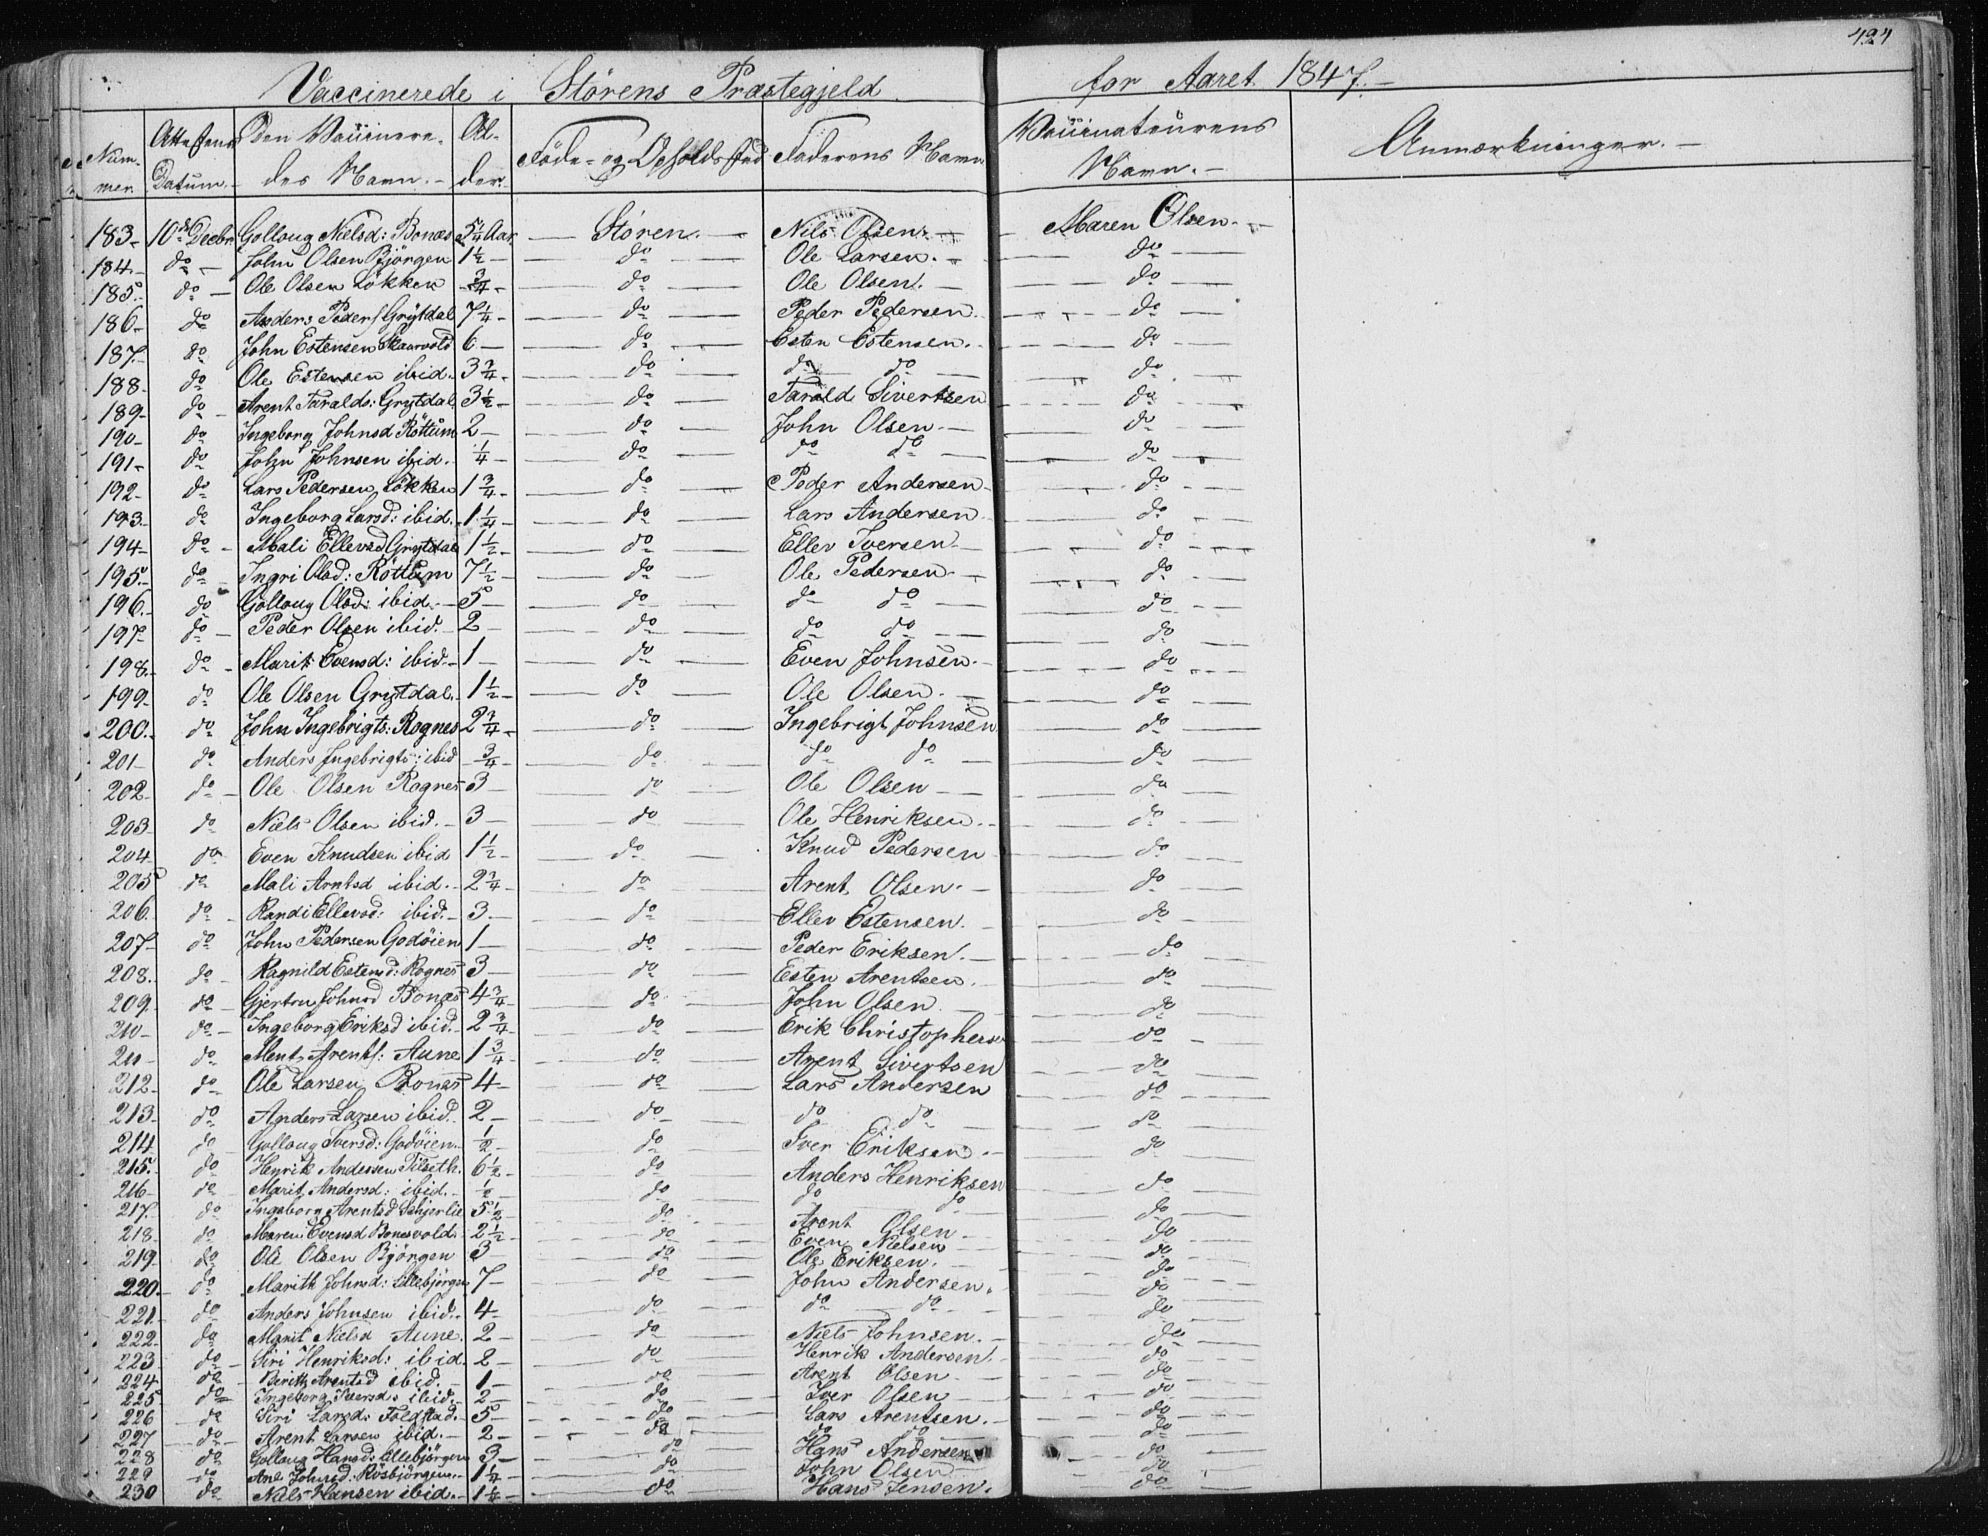 424
Vaccinerede i Störens Præstegjeld for Aaret 1847.-
Num-mer Attestens Datum.- Den Vaccinere-des Navn.- Al-der. Föde- og Opholdssted Faderens Navn Vaccinateurens Navn.- Anmærkninger.-
183- 10de Decbr Golloug Nielsd: Bonæs 5 1/4 Aar — Stören.— Nils Olsen.— Maren Olsen.-
184.- do John Olsen Björgen 1 1/2 — do — Ole Larsen.- do
185.- do Ole Olsen Lökken 3/4 — do — Ole Olsen.- do
186- do Anders Peders: Grytdal 7 1/4 — do — Peder Pedersen do
187.- do John Estensen Skaarvold 6 — do — Esten Estensen. do
188- do Ole Estensen ibid. 3 3/4 — do — do do do
189- do Arent Taralds: Grytdal 3 1/2 — do — Tarald Sivertsen do
190- do Ingeborg Johnsd Röttum 2 — do — John Olsen.- do
191- do John Johnsen ibid. 1/4 — do — do do do
192- do Lars Pedersen Lökken 1 3/4 — do — Peder Andersen do
193.- do Ingeborg Larsd: ibid. 1 1/4 — do — Lars Andersen do
194- do Mali Ellevsd Grytdal 1 1/2 — do — Ellev Iversen do
195.- do Ingri Olsd: Röttum 7 1/2 — do — Ole Pedersen.- do
196.- do Golloug Olsd: ibid.- 5 — do — do do do
197- do Peder Olsen ibid.- 2 — do — do do do
198.- do Marit Evensd: ibid.- 1 — do — Even Johnsen.- do
199.- do Ole Olsen Grytdal. 1 1/2 — do — Ole Olsen.- do
200.- do John Ingebrigts: Rognes 2 3/4 — do — Ingebrigt Johnsen do
201- do Anders Ingebrigts: ibid 3/4 — do — do do do
202- do Ole Olsen Rognes 3 — do — Ole Olsen do
203- do Niels Olsen ibid.- 3 — do — Ole Henriksen. do
204 do Even Knudsen ibid 1 1/2 — do — Knud Pedersen do
205 do Mali Arntsd ibid.- 2 3/4 — do — Arent Olsen.- do
206. do Randi Ellevsd: ibid.- 3 — do — Ellev Estensen. do
207- do John Pedersen Godöien 1 — do — Peder Eriksen.- do
208. do Ragnild Estensd: Rognes 3 — do — Esten Arentsen. do
209. do Gjertru Johnsd Bonæs 4 3/4 — do — John Olsen do
210- do Ingeborg Eriksd ibid.- 2 3/4 — do — Erik Christophers do
211- do Ment Arents: Aune 1 3/4 — do — Arent Sivertsen do
212.- do Ole Larsen Bonæs 4 — do — Lars Andersen do
213.- do Anders Larsen ibid. 2 — do — do do do
214 do Golloug Iversd: Godöien 1/2 — do — Iver Eriksen.- do
215. do Henrik Andersen Tilseth. 6 1/2 — do — Anders Henriksen do
216- do Marit Andersd: ibid.- 1/2 — do — do do do
217. do Ingeborg Arentsd 5 1/2 — do — Arent Olsen do
218. do Maren Evensd Bonesvold. 2 1/2 — do — Even Nielsen do
219. do Ole Olsen Björgen 3 — do — Ole Eriksen. do
220.- do Marith Johnsd: Lillebjörgen 7 — do — John Andersen. do
221.- do Anders Johnsen ibid.. 4 — do — do do do
222- do Marit Nielsd Aune. 2 — do — Niels Johnsen. do
223 do Siri Henriksd: ibid 2 — do — Henrik Andersen. do
224 do Berith Arentsd ibid.- 1 — do — Arent Olsen do
225 do Ingeborg Iversd: ibid. 2 — do — Iver Olsen do
226 do Siri Larsd: Foldstad. 5 — do — Lars Arentsen. do
227 do Arent Larsen ibid.- 2 — do — do do do
228 do Golloug Hansd: Lillebjörgen 3 — do — Hans Andersen do
229 do Ane Johnsd: Rösbjörgen. 1 1/4 — do — John Olsen do
230 do Niels Hansen ibid.- 1 1/2 — do — Hans Jensen. do